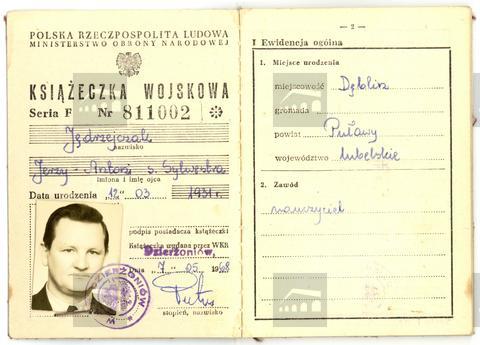 POLSKA RZECZPOSPOLITA LUDOWA
MINISTERSTWO OBRONY NARODOWEJ
KSIĄŻECZKA WOJSKOWA
Seria F Nr 811002
Jędrzejczak
nazwisko
Jerzy-Antoni s. Sylwestra
imiona i imię ojca
Data urodzenia 12 03 1931 r.
podpis posiadacza książeczki
Książeczka wydana przez WKR
Dzierżoniów,
Dnia 7 05 1968
stopień, nazwisko
— 2 —
I Ewidencja ogólna
1. Miejsce urodzenia
miejscowość Dęblin
gromada
powiat Puławy
województwo lubelskie
2. Zawód
nauczyciel